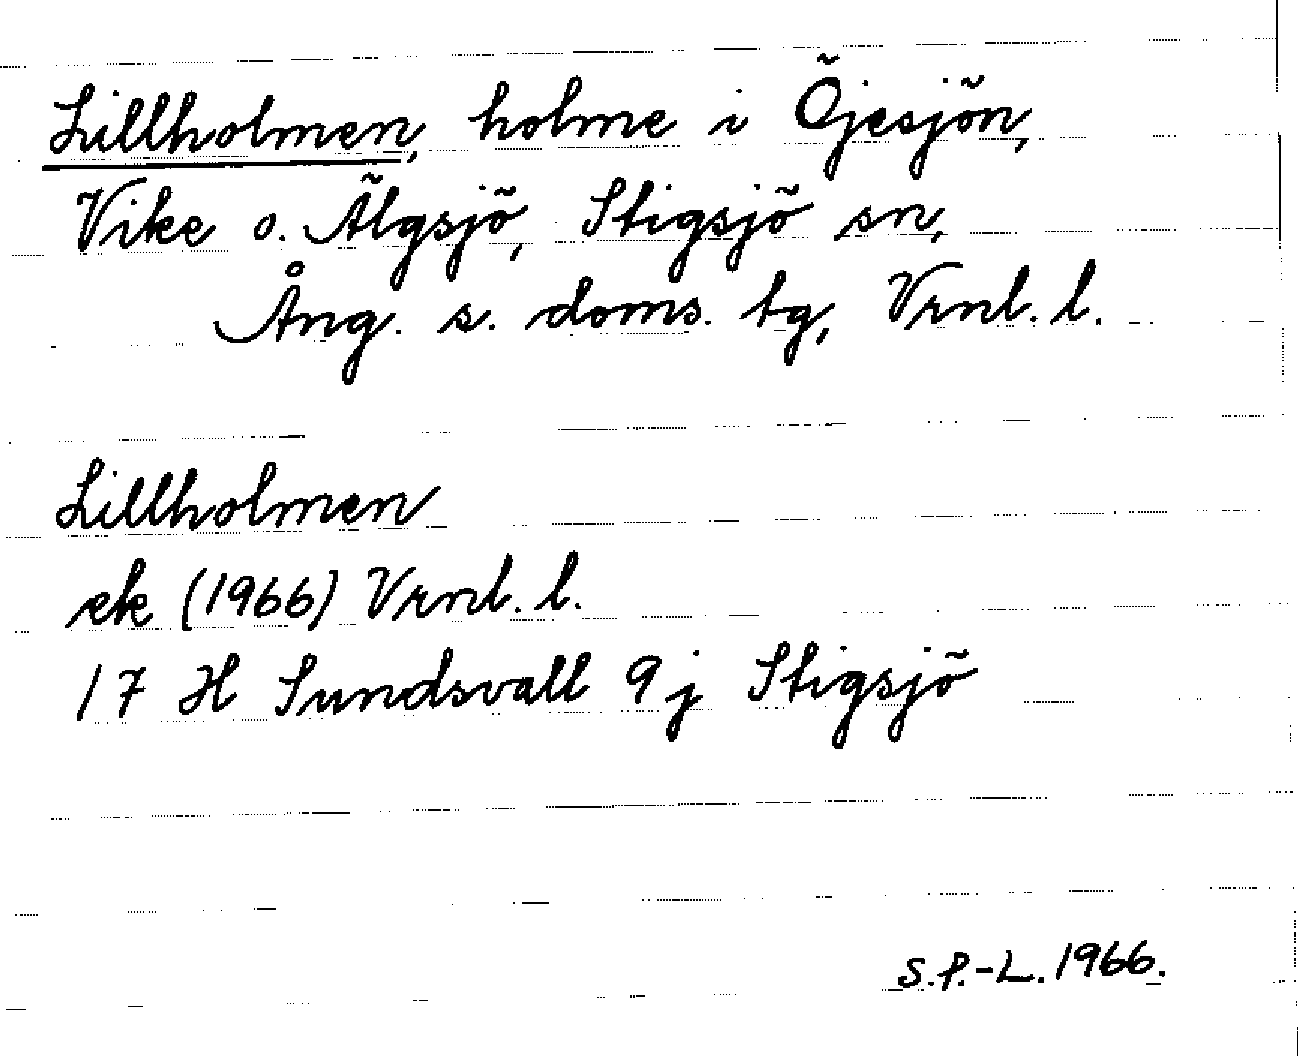 Lillholmen, holme i Öjesjön,
Vike o. Älgsjö, Stigsjö sn,
Ång. s. doms. tg, Vrnl. l.
Lillholmen
ek (1966) Vrnl. l.
17 H Sundsvall 9 j Stigsjö
S.P.-L. 1966.